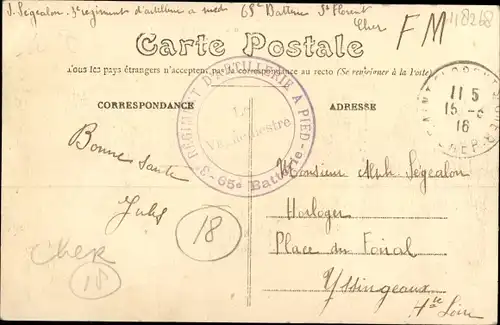 J. Ségealon. 3e régiment d'artillerie a pied 65e Batterie St Florent
Cher
FM
118268
Carte Postale
Tous les pays étrangers n'acceptent pas la correspondance au recto (Se renseigner à la Poste)
CORRESPONDANCE
ADRESSE
3e REGIMENT D'ARTILLERIE A PIED
Le
Vaguemestre
65e Batterie
11 5
15 -
16
CHER
Bonne Santé
Jules
Monsieur Alph. Ségealon
Horloger
Place du Foiral
Yssingeaux
Hte Loire
18
Cher
18